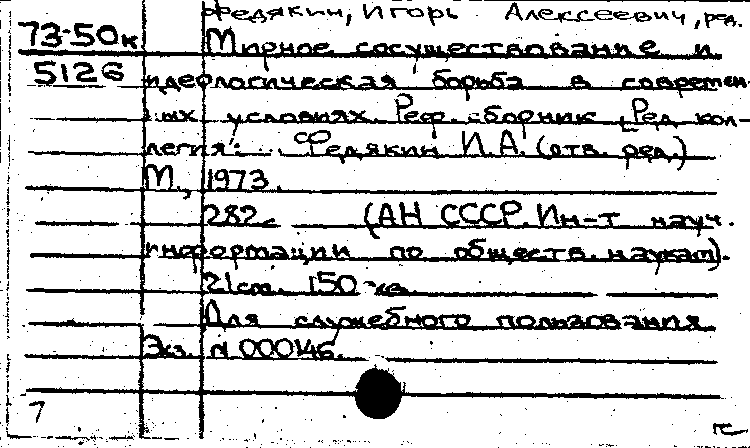 Федякин, Игорь Алексеевич, ред.
73-50к Мирное сосуществование и
5126 идеологическая борьба в современ-
ных условиях. Реф. сборник. [Ред. кол-
легия: ... Федякин И.А. (отв. ред.)
М., 1973.
282 с. (АН СССР. Ин-т науч.
информации по обществ. наукам).
21 см. 150 экз.
Для служебного пользования.
Экз. N 000146.
7